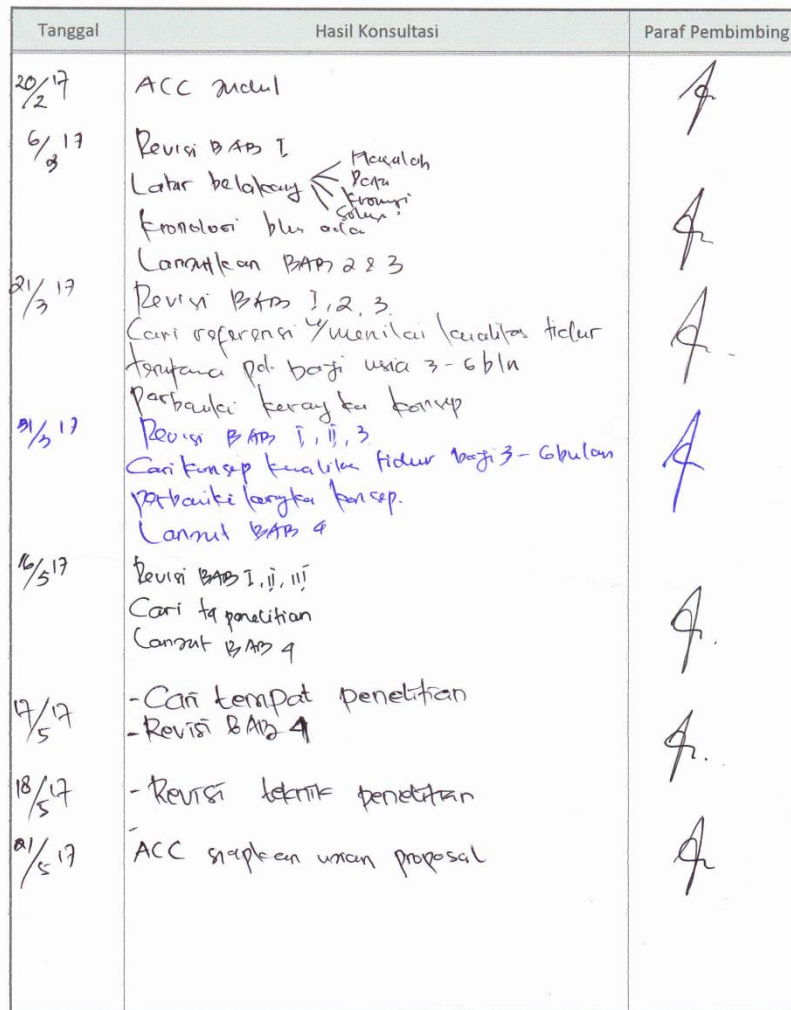 Tanggal Hasil Konsultasi Paraf Pembimbing
20/2 17 ACC Judul
6/3 17 Revisi BAB I
Masalah
Latar belakang Data
Kronologi
Solusi
Kronologi blm ada
Lanjutkan BAB 2 & 3
21/3 17 Revisi BAB I, 2, 3
Cari referensi u/ menilai kualitas tidur
terutama pd. bayi usia 3-6 bln
Perbaiki kerangka konsep
31/3 17 Revisi BAB I, II, 3
Cari konsep kualitas tidur bayi 3-6 bulan
perbaiki kerangka konsep.
Lanjut BAB 4
16/5 17 Revisi BAB I, II, III
Cari penelitian
Lanjut BAB 4
17/5 17 - Cari tempat penelitian
- Revisi BAB 4
18/5 17 - Revisi teknik penelitian
21/5 17 ACC siapkan ujian proposal